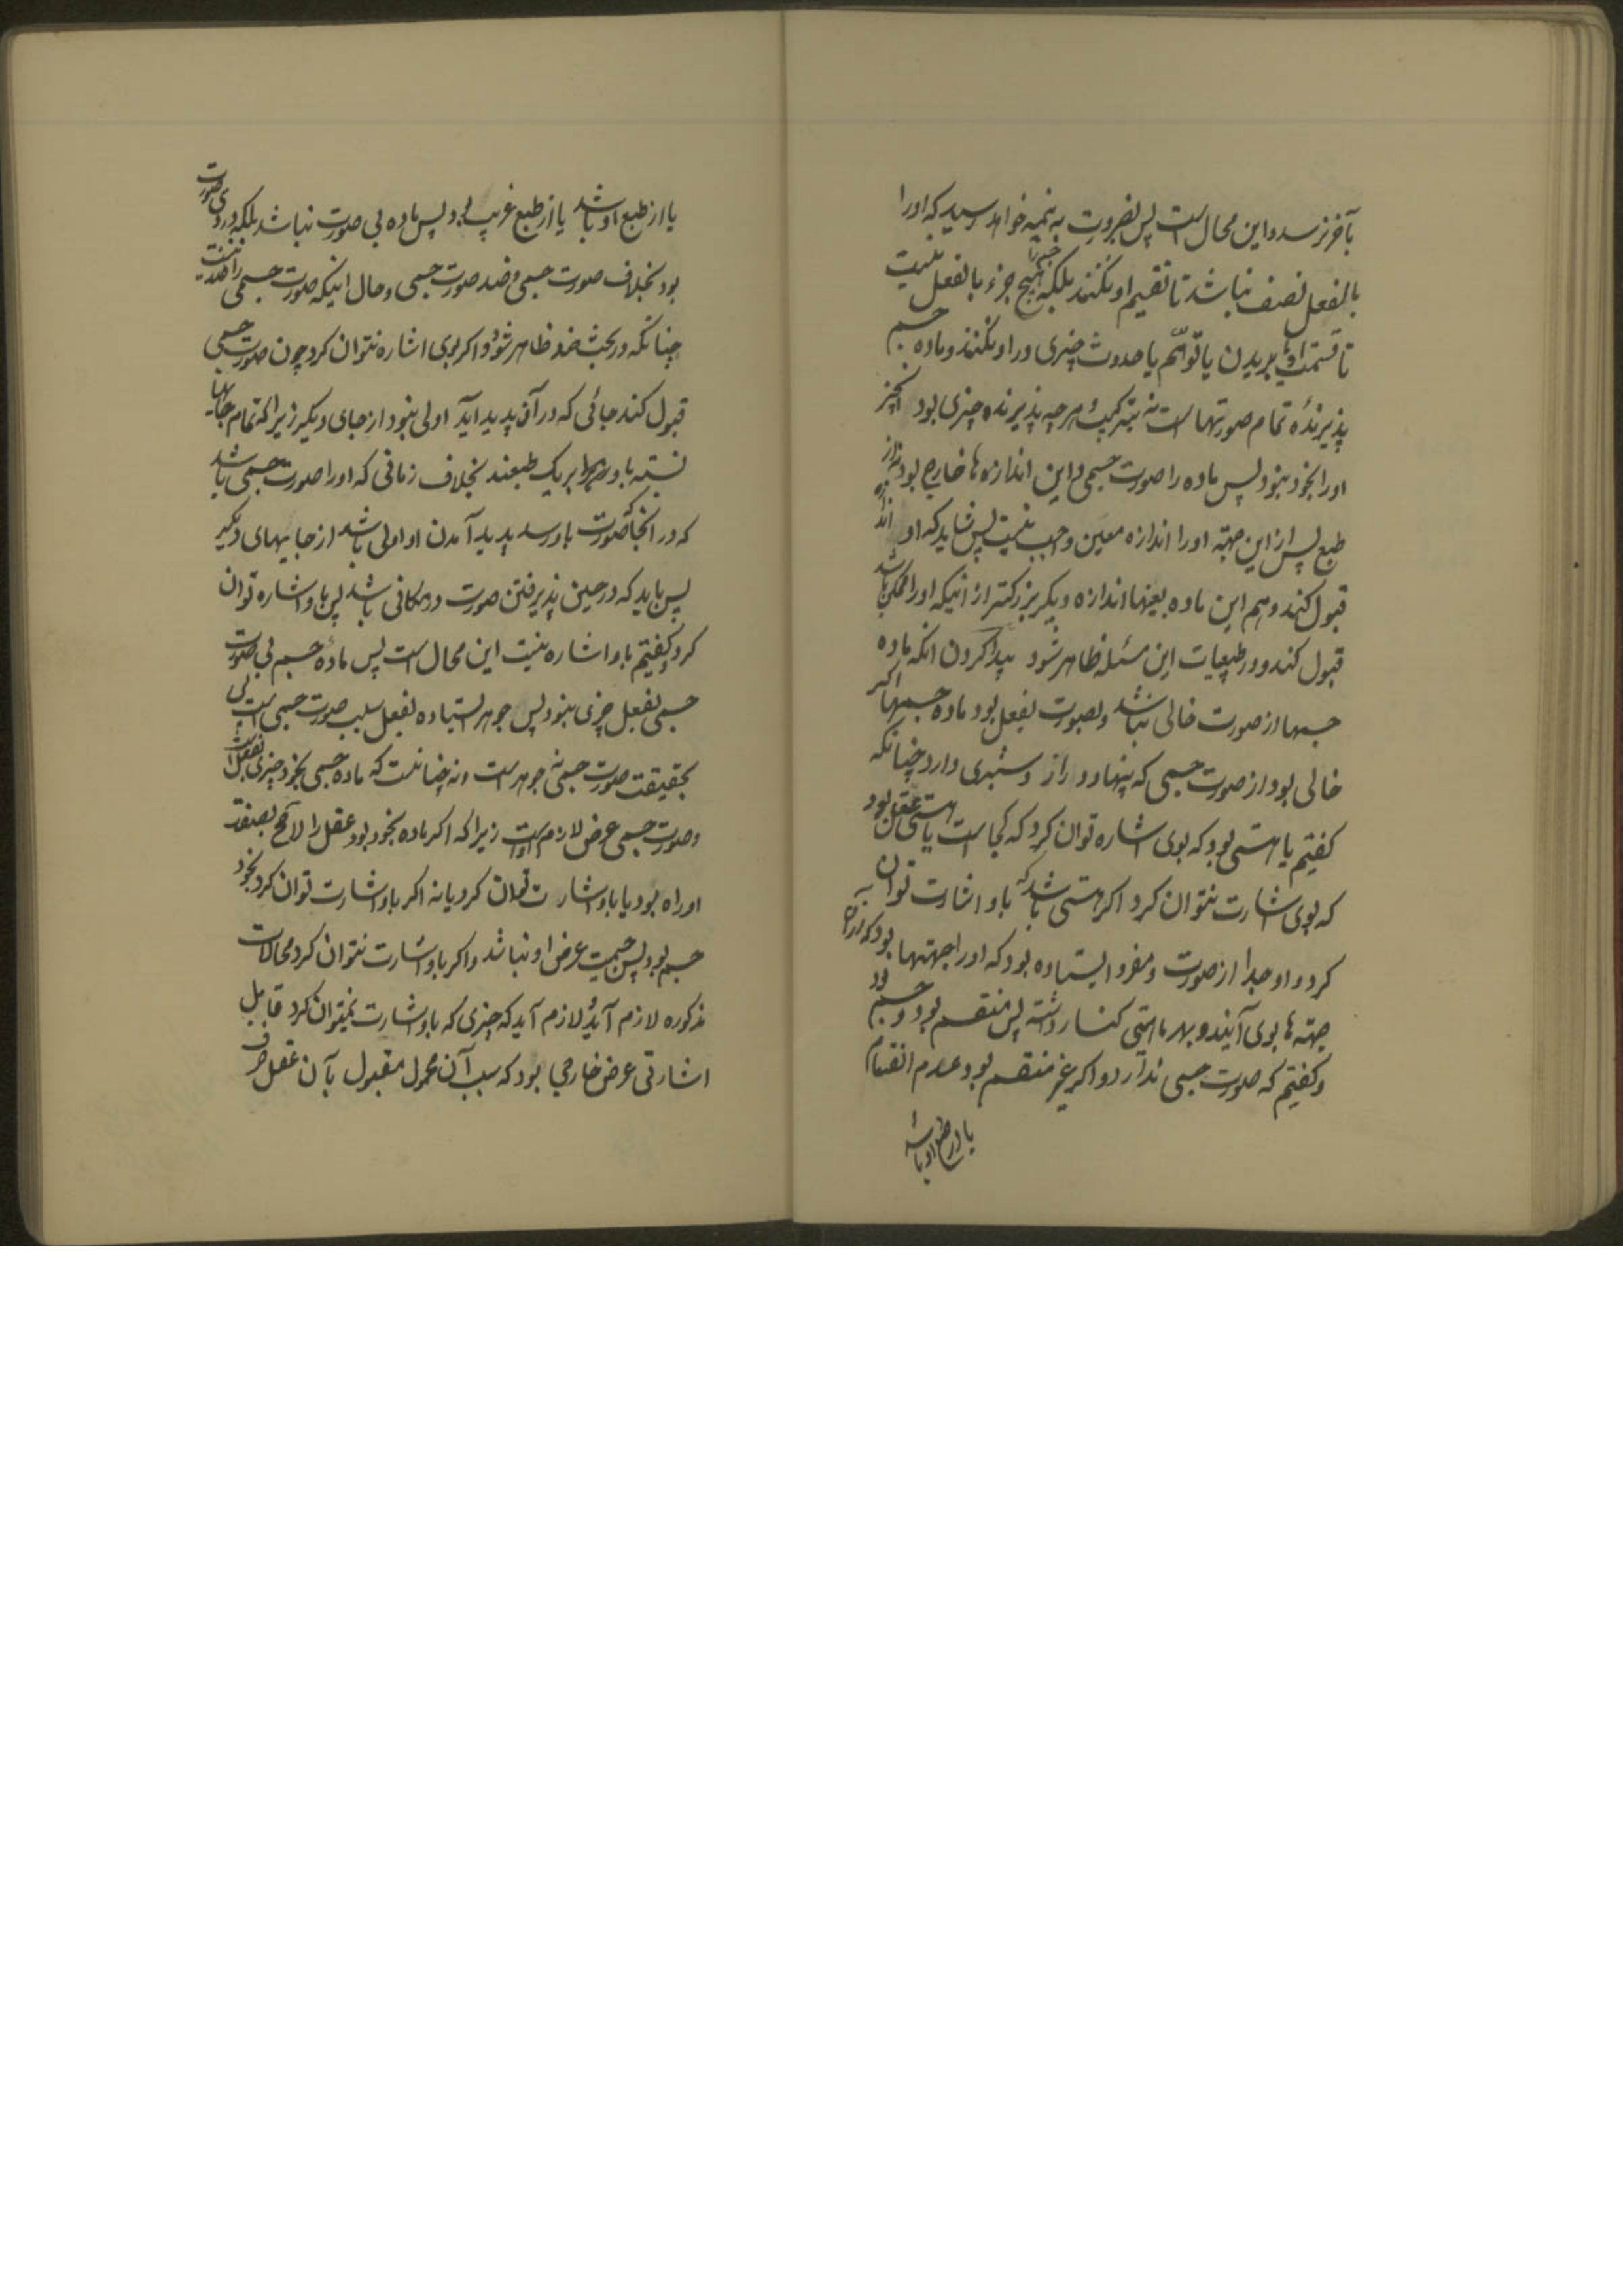 بآخر نرسد و این محال است پس بضرورت به نیمه خواهد رسید که او را
بالفعل نصف نباشد تا تقسیم او نکنند بلکه جسم را هیچ جزء بالفعل نیست
تا قسمت او به بریدن یا توهّم یا حدوث چیزی در او نکنند و ماده جسم
پذیرندهٔ تمام صورتهاست نه بترکیب و هر چه پذیرنده چیزی بود آنچیز
او را بخود نبود پس ماده را صورت جسمی و این اندازه‌ها خارج بود نه از
طبع پس از این جهة او را اندازه معین واجب نیست پس شاید که او اندازه
قبول کند و هم این ماده بعینها اندازه دیگر بزرکتر از اینکه او را ممکن باشد
قبول کند و در طبیعیات این مسئله ظاهر شود پیدا کردن آنکه ماده
جسمها از صورت خالی نباشد و بصورت بفعل بود ماده جسمها اکر
خالی بود از صورت جسمی که پهنا و دراز و ستبری دارد چنانکه
کفتیم یا هستی بود که بوی اشاره توان کرد که کجاست یا هستی عقلی بود
که بوی اشارت نتوان کرد اکر هستی باشد که باو اشارت توان
کرد و او جدا از صورت و مفرد ایستاده بود که او را جهتها بود که از آن
جهته‌ها بوی آیند و بهر ماستی کنار داشته پس منقسم بود و جسم بود
و کفتیم که صورت جسمی ندارد و اکر غیر منقسم بود عدم انقسام
یا از طبع او باشد
یا از طبع او باشد یا از طبع غریب بود پس ماده بی صورت نباشد بلکه در وی صورت
بود بخلاف صورت جسمی و ضد صورت جسمی و حال اینکه صورت جسمی را ضد نیست
چنانکه در بحث ضد ظاهر شود و اکر بوی اشاره نتوان کرد چون صورت جسمی
قبول کند جائی که در آن پدید آید اولی نبود از جای دیکر زیرا که تمام جایها
نسبة باو برابر یک طبعند بخلاف زمانی که او را صورت جسمی باشد
که در آنجا که صورت باو رسد پدید آمدن او اولی باشد از جایهای دیکر
پس باید که در حین پذیرفتن صورت در مکانی باشد پس باو اشاره توان
کرد و کفتیم باو اشاره نیست این محال است پس مادهٔ جسم بی صورت
جسمی بفعل چیزی نبود پس جوهر ایستاده بفعل بسبب صورت جسمی است پس
بحقیقت صورت جسمیه جوهر است و نه چنانست که ماده جسمی بخود چیزی بفعل است
و صورت جسمی عرض لازم اوست زیرا که اکر ماده بخود بود عقل را لا محاله بصفت
او راه بود یا باو اشارت توان کرد یا نه اکر باو اشارت توان کرد بخود
جسم بود پس جسمیت عرض او نباشد و اکر باو اشارت نتوان کرد محالات
مذکوره لازم آید و لازم آید که چیزی که باو اشارت نمیتوان کرد قابل
اشارتی عرض خارجی بود که بسبب آن محمول مقبول بآن عقل صرف